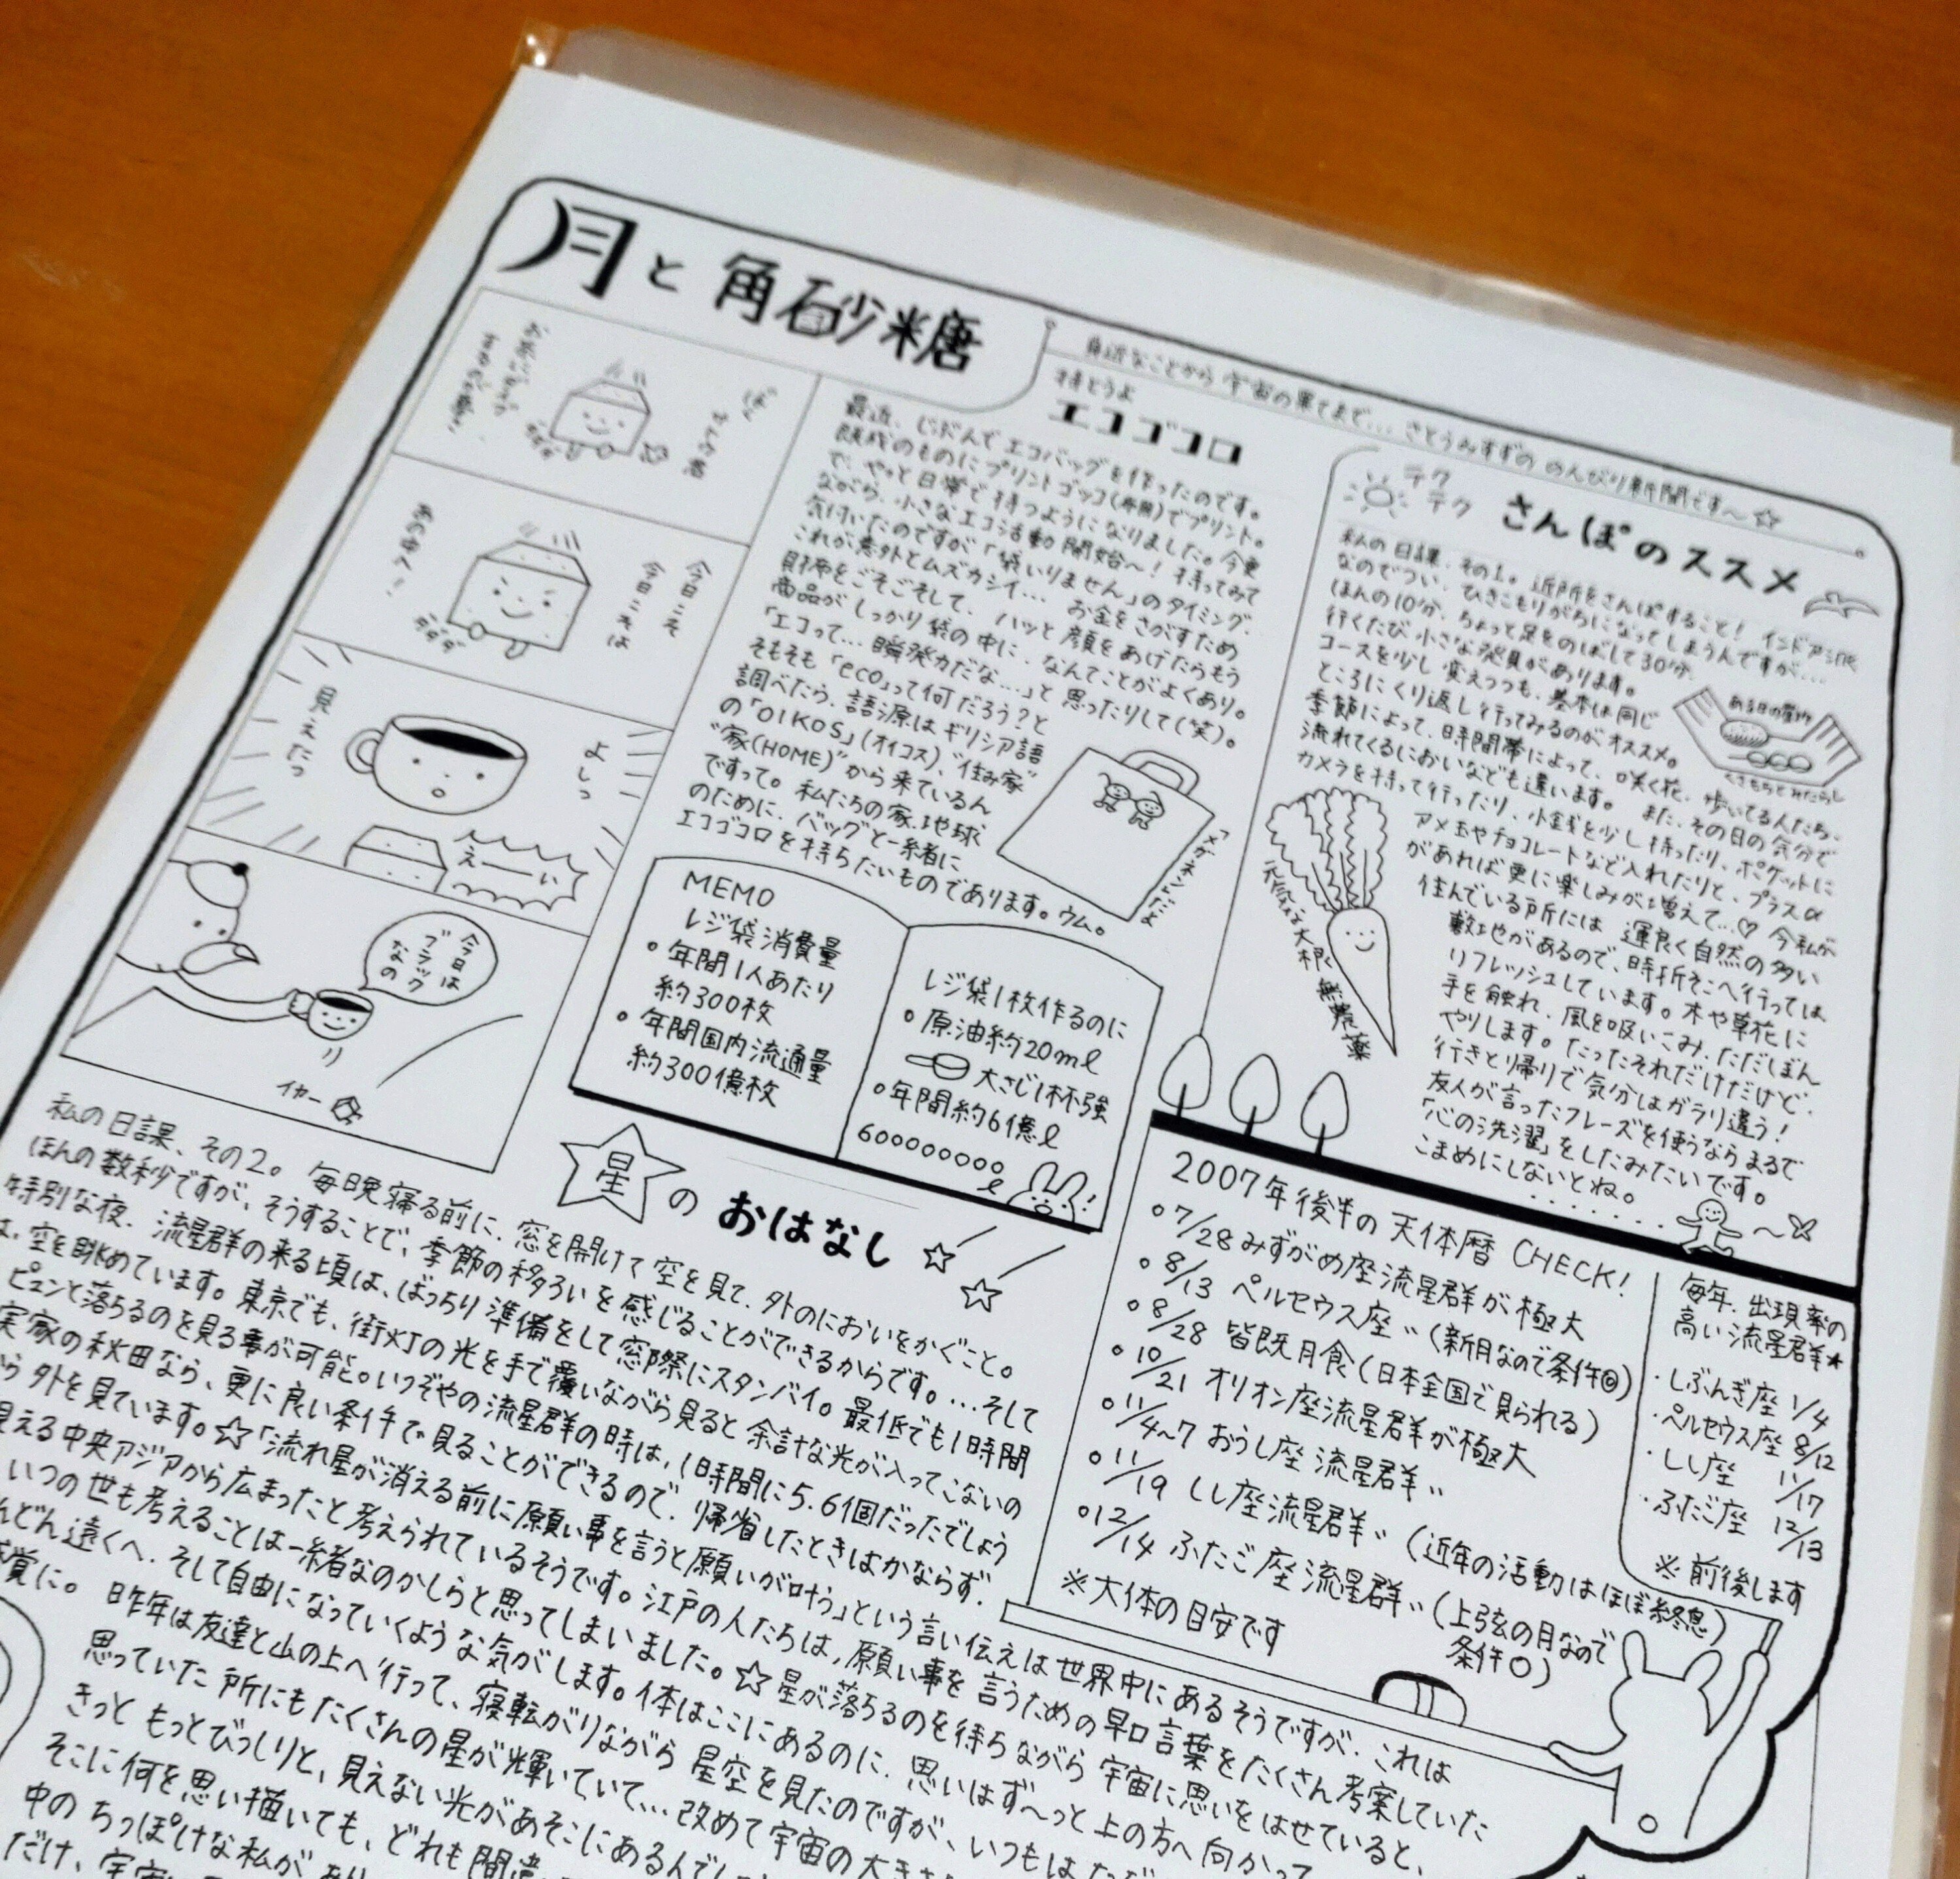 月と角砂糖
身近なことから宇宙の果てまで… さとうみすずの のんびり新聞です〜☆
ぼく
かくざとう
今日こそ
今日こそは
あの中へ!
よしっ
見えたっ
えーーい
今日は
ブラック
なの
イヤー
持とうよ
エコゴコロ
最近、じぶんでエコバッグを作ったのです。
既成のものにプリントゴッコ(再開)でプリント。
で、やっと日常で持つようになりました。今更
ながら、小さなエコ活動開始〜! 持ってみて
気付いたのですが「袋いりません」のタイミング、
これが意外とムズカシイ… お金をさがすため
財布をごそごそして、ハッと顔をあげたらもう
商品がしっかり袋の中に、なんてことがよくあり。
「エコって… 瞬発力だな…」と思ったりして(笑)。
そもそも「eco」って何だろう?と
調べたら、語源はギリシア語
の「OIKOS」(オイコス)、"住み家"
"家(HOME)"から来ているん
ですって。私たちの家、地球
のために、バッグと一緒に
エコゴコロを持ちたいものであります。ウム。
「メガネ
MEMO
レジ袋消費量
・年間1人あたり
約300枚
・年間国内流通量
約300億枚
レジ袋1枚作るのに
・原油約20ml
大さじ1杯強
・年間約6億l
600000000
l
テク
テク
さんぽのススメ
私の日課、その1。近所をさんぽすること! インドア派
なのでつい、ひきこもりがちになってしまうんですが…
ほんの10分、ちょっと足をのばして30分、
行くたび小さな発見があります。
コースを少し変えつつも、基本は同じ
ところにくり返し行ってみるのがオススメ。
季節によって、時間帯によって、咲く花、歩いてる人たち、
流れてくるにおいなども違います。また、その日の気分で
カメラを持って行ったり、小銭を少し持ったり、ポケットに
アメ玉やチョコレートなど入れたりと、プラスα
があれば更に楽しみが増えて…♡ 今私が
住んでいる所には 運良く自然の多い
敷地があるので、時折そこへ行っては
リフレッシュしています。木や草花に
手を触れ、風を吸いこみ、ただぼん
やりします。たったそれだけだけど、
行きと帰りで気分はガラリ違う!
友人が言ったフレーズを使うならまるで
「心の洗濯」をしたみたいです。
こまめにしないとね。
ある日の買物
くさもちとみたらし
元気な大根
無農薬
星の おはなし
私の日課、その2。毎日晩寝る前に、窓を開けて空を見て、外のにおいをかぐこと。
ほんの数秒ですが、そうすることで、季節の移ろいを感じることができるからです。…そして
特別な夜、流星群の来る頃は、ばっちり準備をして窓際にスタンバイ。最低でも1時間
は、空を眺めています。東京でも、街灯の光を手で覆いながら見ると余計な光が入ってこないの
ピュンと落ちるのを見る事が可能。いつぞやの流星群の時は、1時間に5.6個だったでしょう
実家の秋田なら、更に良い条件で見ることができるので、帰省したときはかならず、
ら外を見ています。☆「流れ星が消える前に願い事を言うと願いが叶う」という言い伝えは世界中にあるそうですが、これは
見える中央アジアから広まったと考えられているそうです。江戸の人たちは、願い事を言うための早口言葉をたくさん考案していた
いつの世も考えることは一緒なのかしらと思ってしまいました。☆星が落ちるのを待ちながら宇宙に思いをはせていると、
んどん遠くへ、そして自由になっていくような気がします。体はここにあるのに、思いはず〜っと上の方へ向かって
感覚に。昨年は友達と山の上へ行って、寝転がりながら星空を見たのですが、いつもは
思っていた所にもたくさんの星が輝いていて… 改めて宇宙の大きさ
きっともっとびっしりと、見えない光があそこにあるんでし
そこに何を思い描いても、どれも間違
中のちっぽけな私が
だけ、宇宙
2007年後半の天体暦 CHECK!
・7/28 みずがめ座流星群が極大
・8/13 ペルセウス座〃(新月なので条件◎)
・8/28 皆既月食(日本全国で見られる)
・10/21 オリオン座流星群が極大
・11/4~7 おうし座流星群〃
・11/19 しし座流星群〃(近年の活動はほぼ終息)
・12/14 ふたご座流星群〃(上弦の月なので
条件○)
※大体の目安です
毎年、出現率の
高い流星群★
・しぶんぎ座 1/4
・ペルセウス座 8/12
・しし座 11/17
・ふたご座 12/13
※前後します